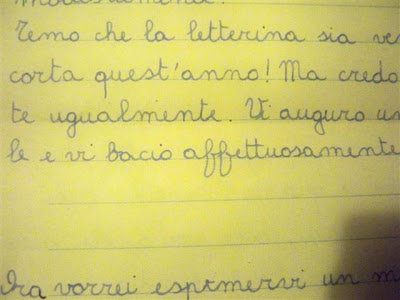 Temo che la letterina sia ve
corta quest'anno! Ma credo
te ugualmente. Vi auguro un
le e vi bacio affettuosamente
Ora vorrei esprmervi un m